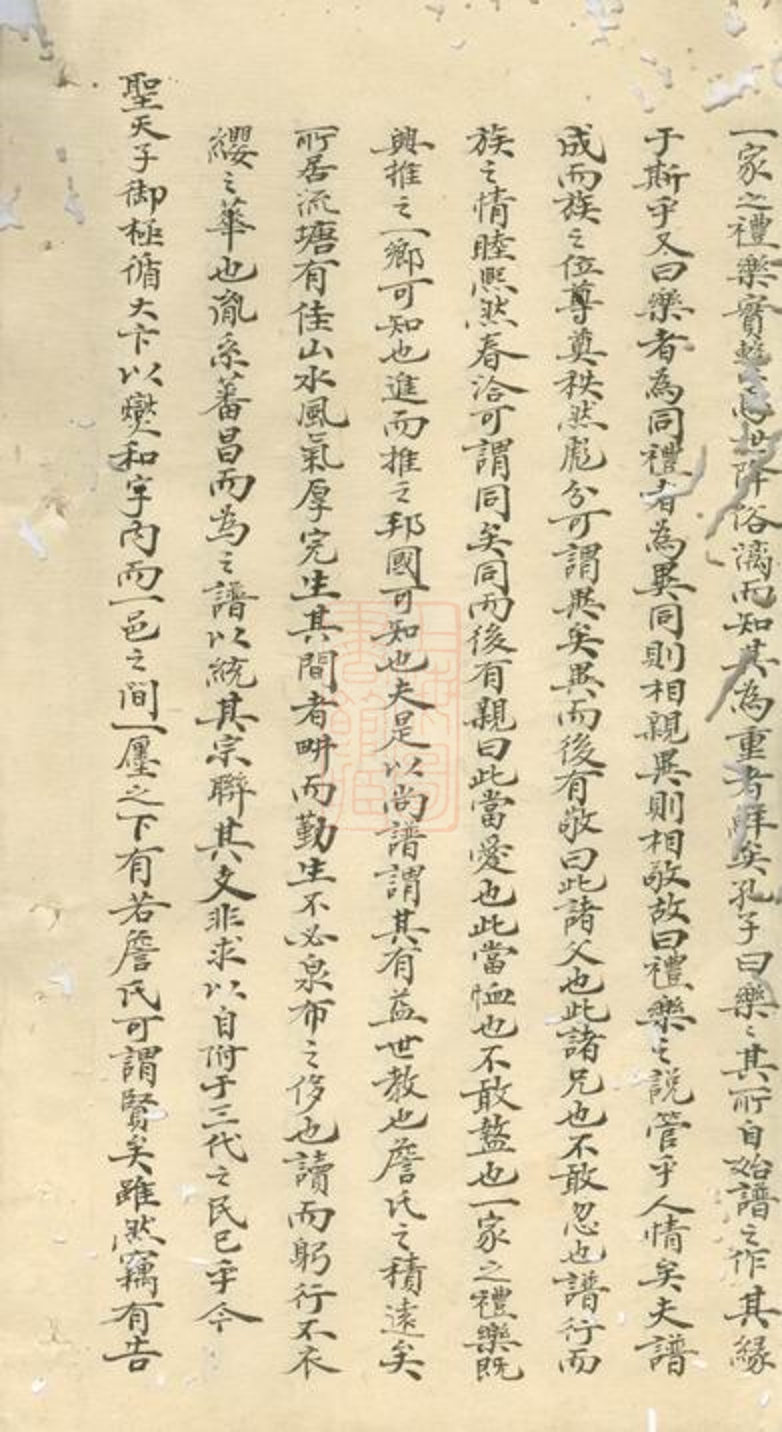 一家之禮樂實整而世降俗漓而知其為重者鮮矣孔子曰樂〻其所自始譜之作其緣
于斯乎又曰樂者為同禮者為異同則相親異則相敬故曰禮樂之說管乎人情矣夫譜
成而族之位尊奠秩然彪分可謂異矣異而後有敬曰此諸父也此諸兄也不敢忽也譜行而
族之情睦熙然春洽可謂同矣同而後有親曰此當愛也此當恤也不敢盭也一家之禮樂既
興推之一鄉可知也進而推之邦國可知也夫是以尚譜謂其有益世教也詹氏之積遠矣
所居流塘有佳山水風氣厚完生其間者畊而勤生不必泉布之侈也讀而躬行不衣
纓之華也胤系蕃昌而為之譜以統其宗聯其支非求以自附于三代之民已乎今
聖天子御極循大卞以爕和宇內而一邑之間一廛之下有若詹氏可謂賢矣雖然竊有告